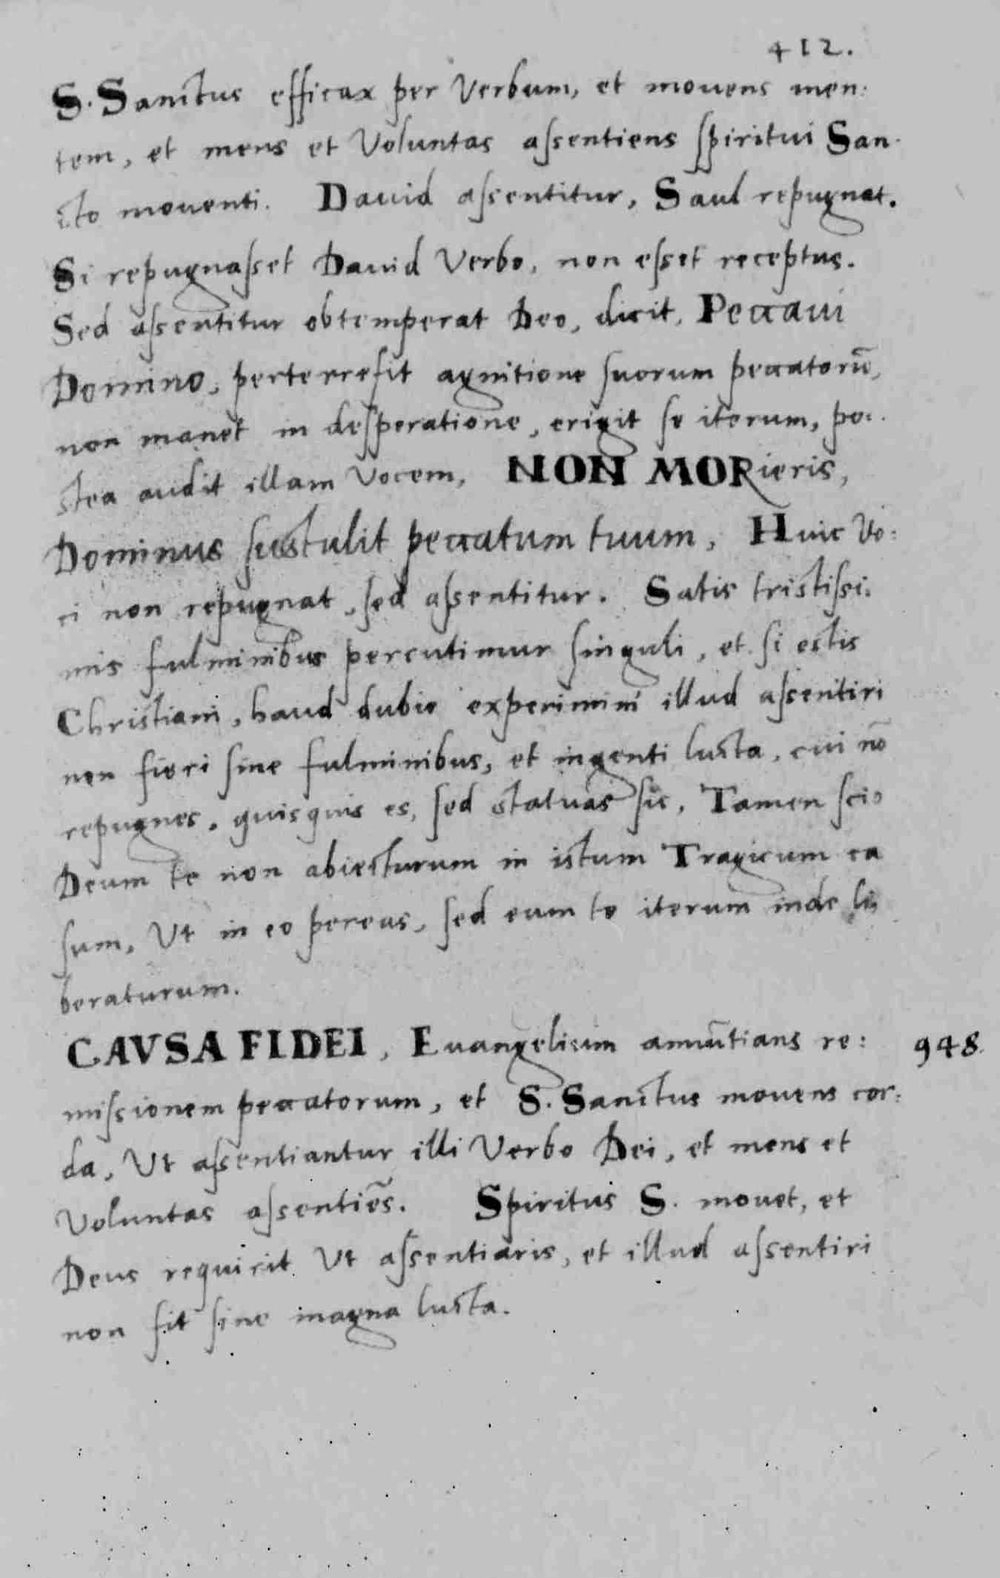 412.
S. Sanctus efficax per Verbum, et mouens men:
tem, et mens et Voluntas assentiens spiritui San-
cto mouenti. Dauid assentitur, Saul repugnat.
Si repugnasset Dauid Verbo, non esset receptus.
Sed assentitur obtemperat Deo, dicit, Peccaui
Domino, perterrefit agnitione suorum peccatorũ,
non manet in desperatione, erigit se iterum, po:
stea audit illam Vocem, NON MORieris,
Dominus sustulit peccatum tuum, Huic Vo:
ci non repugnat, sed assentitur. Satis tristissi:
mis fulminibus percutimur singuli, et si estis
Christiani, haud dubie experimini illud assentiri
non fieri sine fulminibus, et ingenti lucta, cui nõ
repugnes, quisquis es, sed statuas sic, Tamen scio
Deum te non abiecturum in istum Tragicum ca
sum, Vt in eo pereas, sed eum te iterum inde li,
beraturum.
CAVSA FIDEI, Euangelium annũtians re:
948.
missionem peccatorum, et S. Sanctus mouens cor:
da, Vt assentiantur illi Verbo Dei, et mens et
Voluntas assentiẽs. Spiritus S. mouet, et
Deus requirit Vt assentiaris, et illud assentiri
non fit sine magna lucta.